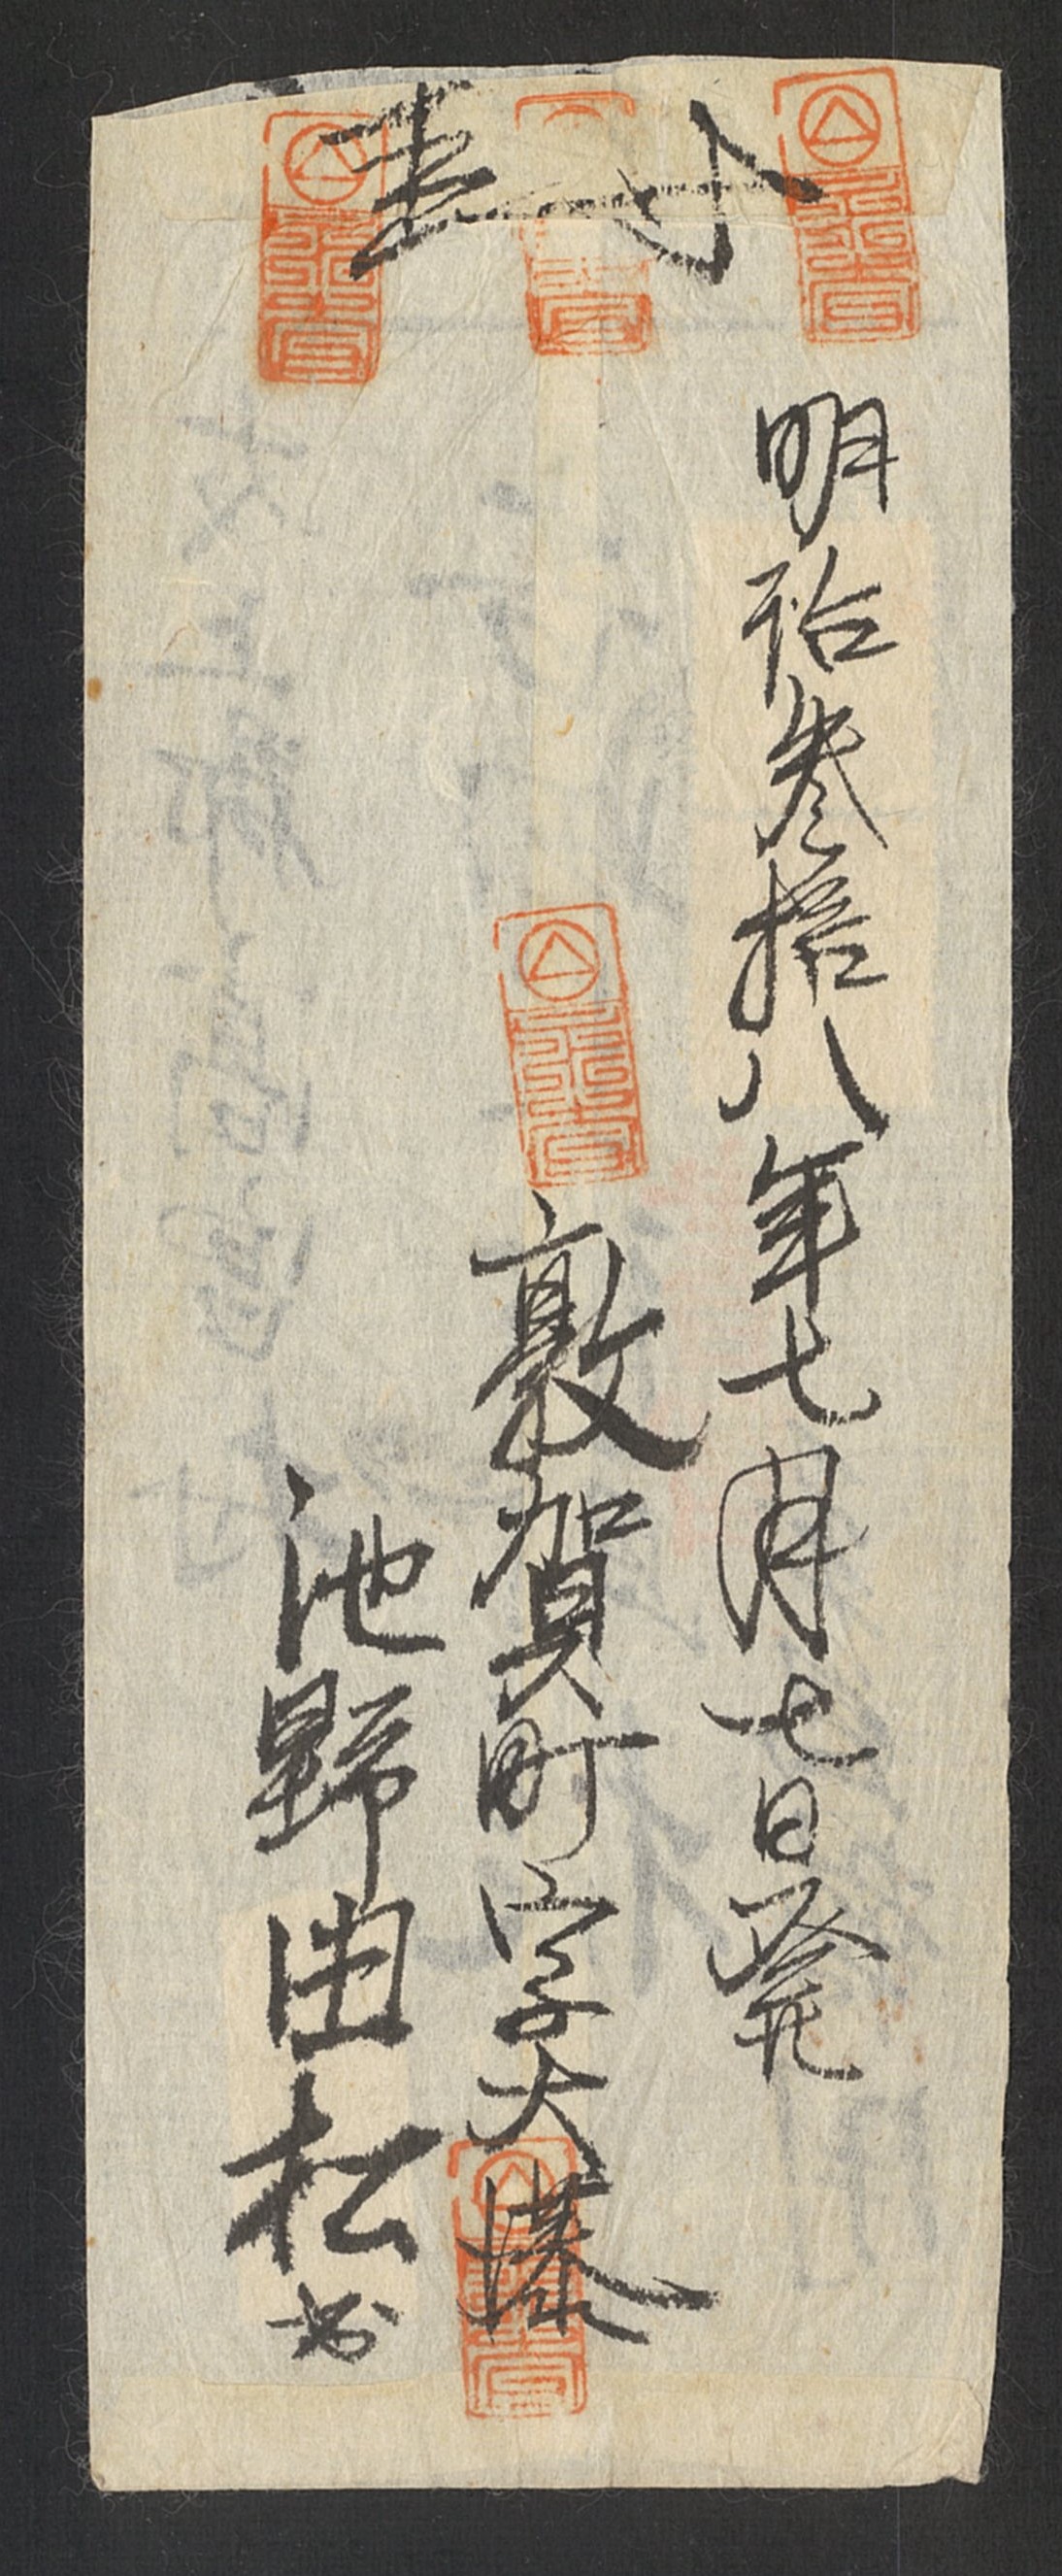 封
明治参拾八年七月七日発
敦賀町字大湊
池野由松